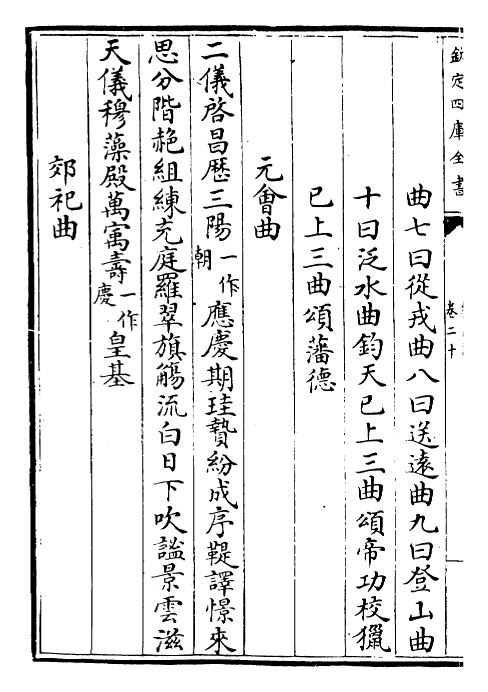 欽定四庫全書
卷二十
曲七曰從戎曲八曰送遠曲九曰登山曲
十曰泛水曲鈞天已上三曲頌帝功校獵
已上三曲頌藩德
元會曲
二儀啓昌歷三陽一作朝應慶期珪贄紛成序鞮譯憬來
思分階艴組練充庭羅翠旗觴流白日下吹謐景雲滋
天儀穆藻殿萬㝢壽一作慶皇基
郊祀曲